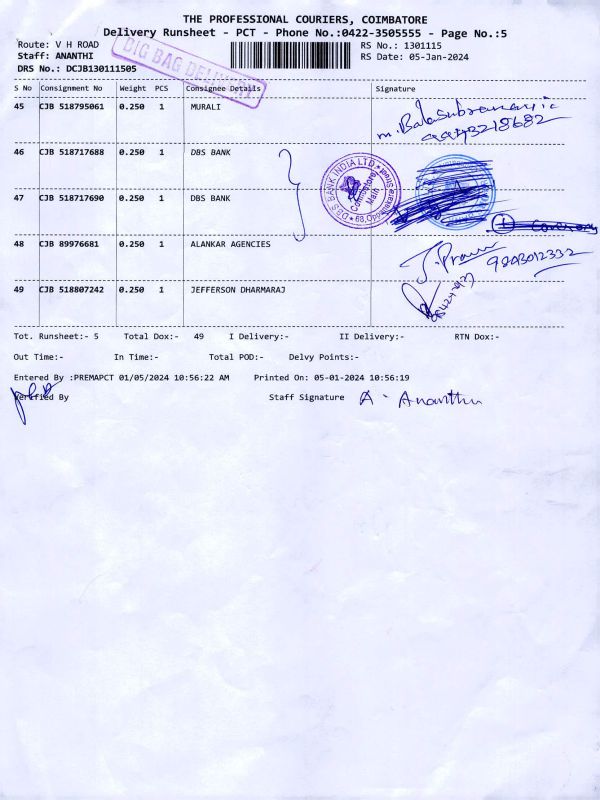 THE PROFESSIONAL COURIERS, COIMBATORE
Delivery Runsheet - PCT - Phone No.:0422-3505555 - Page No.:5
Route: V H ROAD RS No.: 1301115
Staff: ANANTHI RS Date: 05-Jan-2024
DRS No.: DCJB130111505
BIG BAG DELIVERY
S No Consignment No Weight PCS Consignee Details Signature
45 CJB 518795061 0.250 1 MURALI
m. Balasubramani
46 CJB 518717688 0.250 1 DBS BANK
DBS BANK INDIA LTD
Coimbatore
Main
47 CJB 518717690 0.250 1 DBS BANK
48 CJB 89976681 0.250 1 ALANKAR AGENCIES
49 CJB 518807242 0.250 1 JEFFERSON DHARMARAJ
Tot. Runsheet:- 5 Total Dox:- 49 I Delivery:- II Delivery:- RTN Dox:-
Out Time:- In Time:- Total POD:- Delvy Points:-
Entered By :PREMAPCT 01/05/2024 10:56:22 AM Printed On: 05-01-2024 10:56:19
Verified By Staff Signature A. Ananthi